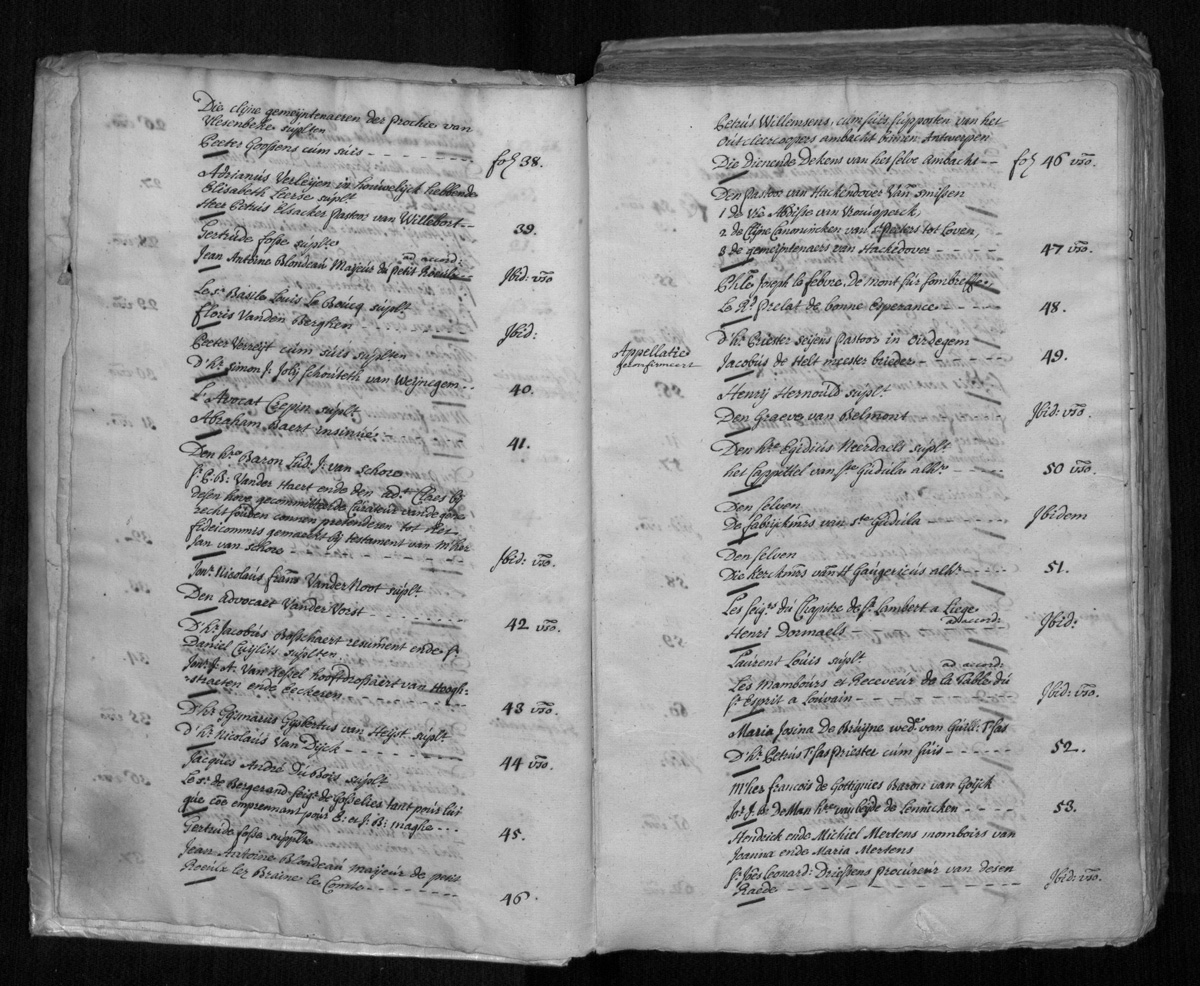 Die clijne gemeijntenaeren der prochie van
Vlesenbeke suplten
Peeter Goossens cum suis - - - fol 38.
Adrianus Verleijen in houwelijck hebbende
Elisabeth Leerse suplt
Heer Petrus Elsacker Pastor van Willebort - - 39.
Gertrude fosse suplte
ad accord:
Jean Antoine Blondeau Majeur du petit Roeulx - Jbid: vso
Le sr Basile Louis Le Boucq suplt
floris Vanden Berghen Jbid:
Peeter Verreijt cum suis suplten
D'hr Simon fr Jolij schouteth van Weijnegem - - 40.
L'Avocat Crepin suplt
Abraham Baert insinué - - - 41.
Den hre Baron Lud: J: van Schore
fr C: B: Vander Haert ende den adt Claes bij
desen hove gecommitteerde curateur vande gene
recht souden connen pretenderen tot het
fideicommis gemaeckt bij testament van mher
Jan van Schore - - - Jbid: vso.
Jonr Nicolaus frans Vander Noot suplt
Den advocaet Vander Vorst - - - 42 vso.
D'hr Jacobus Basschaert resument ende fr
Daniel Cuylits suplten
Jonr J: A: Van Kessel hooftdrossaert van Hoogh-
straeten ende Eeckeren - - - 43 vso.
D'hr Egumarus Gysbertus van Heyst suplt
D'hr Nicolaus Van Dijck - - - 44 vso.
Jacques André Du Bois suplt
Le sr de Bergerand seigr de Gosselies tant pour lui
que coe emprennant pour E: et J: B: maghe - - - 45.
Gertrude fosse supplte
Jean Antoine Blondeau majeur de petit
Roeulx lez Braine le Comte - - - 46.
Petrus Willemsens, cum suis supposten van het
oudt cleercoopers ambacht binnen Antwerpen
Die Dienende Dekens van het selve ambacht - - fol 46 vso.
Den Pastor van Hackendover Van smissen
1 de Vre Abdisse van Vrouwperck,
2 de Clijne Canonincken van st Peeters tot Loven,
3 de gemeijntenaers van Hackedover - - - 47 vso.
Chle Joseph le febvre de Mont sur sombreffe
Le Rd Prelat de bonne Esperance - - - 48.
D'hr Priester Seijens Pastoor in Oirdegem
Appellatie
geconfirmeert
Jacobus de Helt meester brieder - - - 49.
Henrij Hernould suplt
Den Graeve van Belmont Jbid: vso.
Den hre Egidius Neerdaels suplt
het Cappittel van ste Gudula alhr - - - 50 vso.
Den selven
De fabrijckmrs van ste Gudula - - - Jbidem
Den selven
Die kerckmrs van St Gaugericus alhr - - - 51.
Les seigrs du Chapitre de st Lambert a Liege
ad accord:
Henri Dormaels - - Jbid:
Laurent Louis suplt
ad accord:
Les Mambours et Receveur de la Table du
st Esprit a Louvain - - - Jbid: vso.
Maria Josina De Bruijne wede van Guill: T'sas
D'hr Petrus T'sas priester cum suis - - - 52.
M'her francois de Gottignies Baron van Goijck
Jor J: B: De Man hre van beijde de Lennicken - - - 53.
Hendrick ende Michiel Mertens momboirs van
Joanna ende Maria Mertens
fr Joes Leonard: Driessens procureur van desen
Raede - - - Jbid: vso.